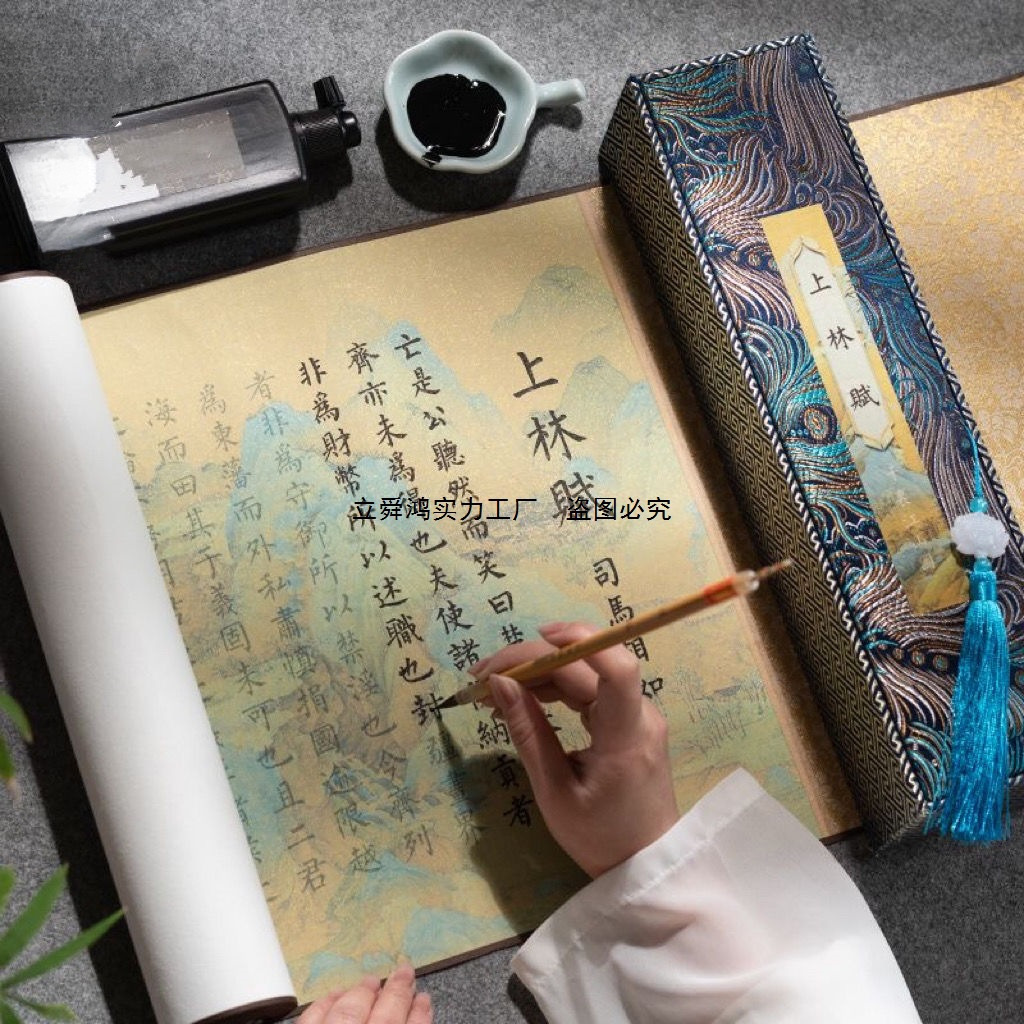 上林賦
司馬相如
亡是公聽然而笑曰楚
齊亦未爲得也夫使諸納貢者
非爲財幣所以述職也封疆畫界
者非爲守御所以禁淫也今齊列
爲東藩而外私肅慎捐國逾限越
海而田其于義固未可也且二君
上林賦
立舜鸿实力工厂 盗图必究